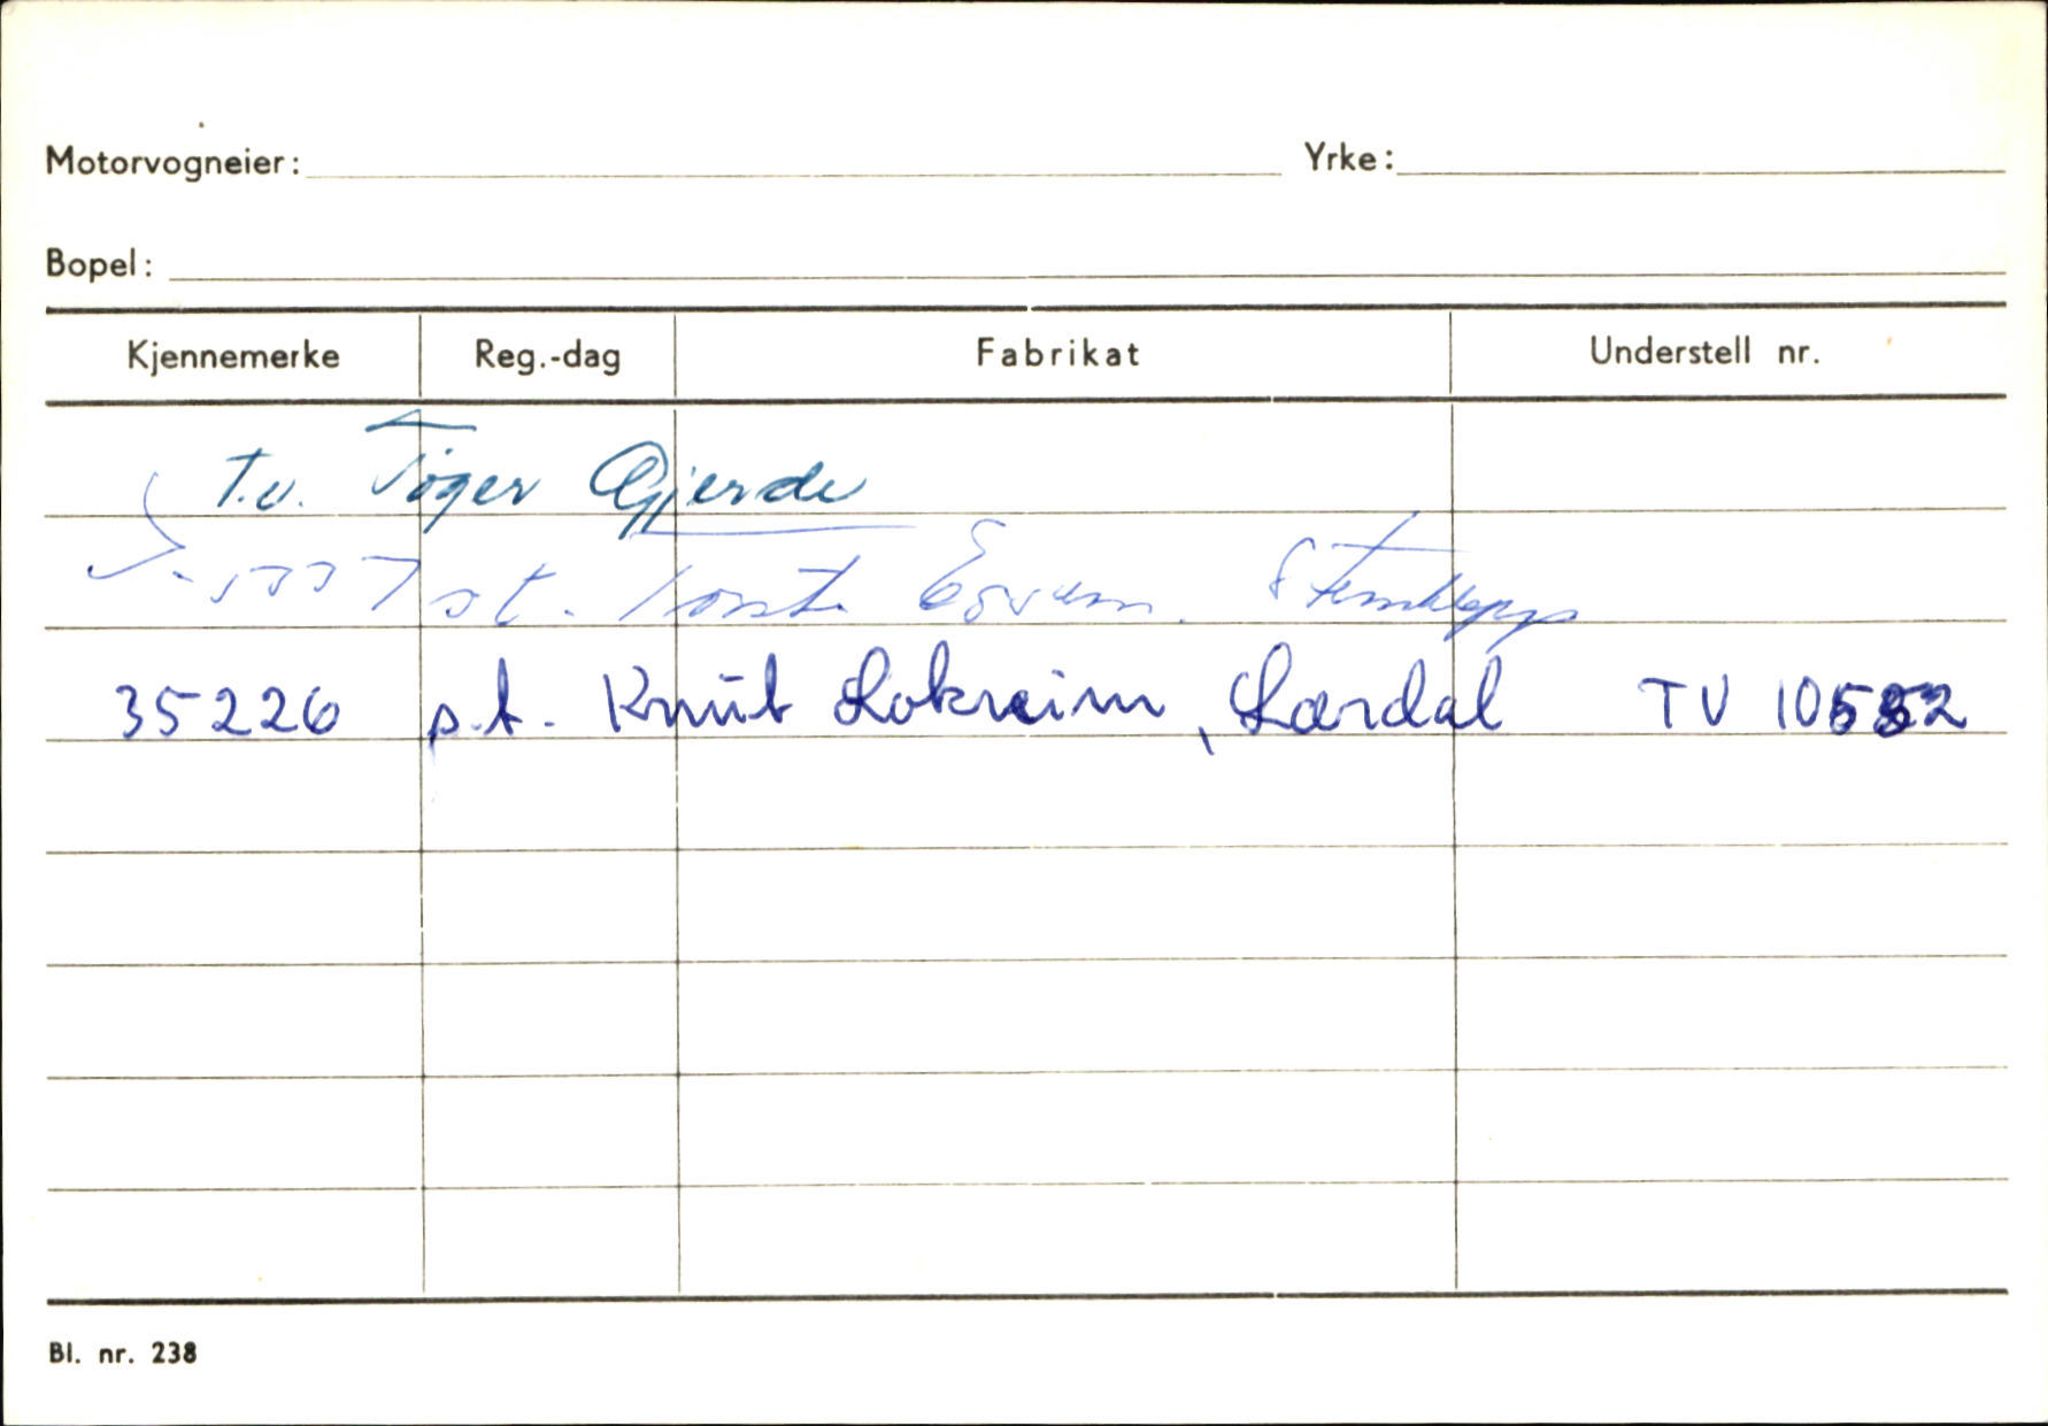 Motorvogneier: Yrke:
Bopel:
Kjennemerke Reg.-dag Fabrikat Understell nr.
T.v. Tøger Gjerde
st.
35226 p.t. Knut Lokreim, Lærdal TV 10552
Bl. nr. 238